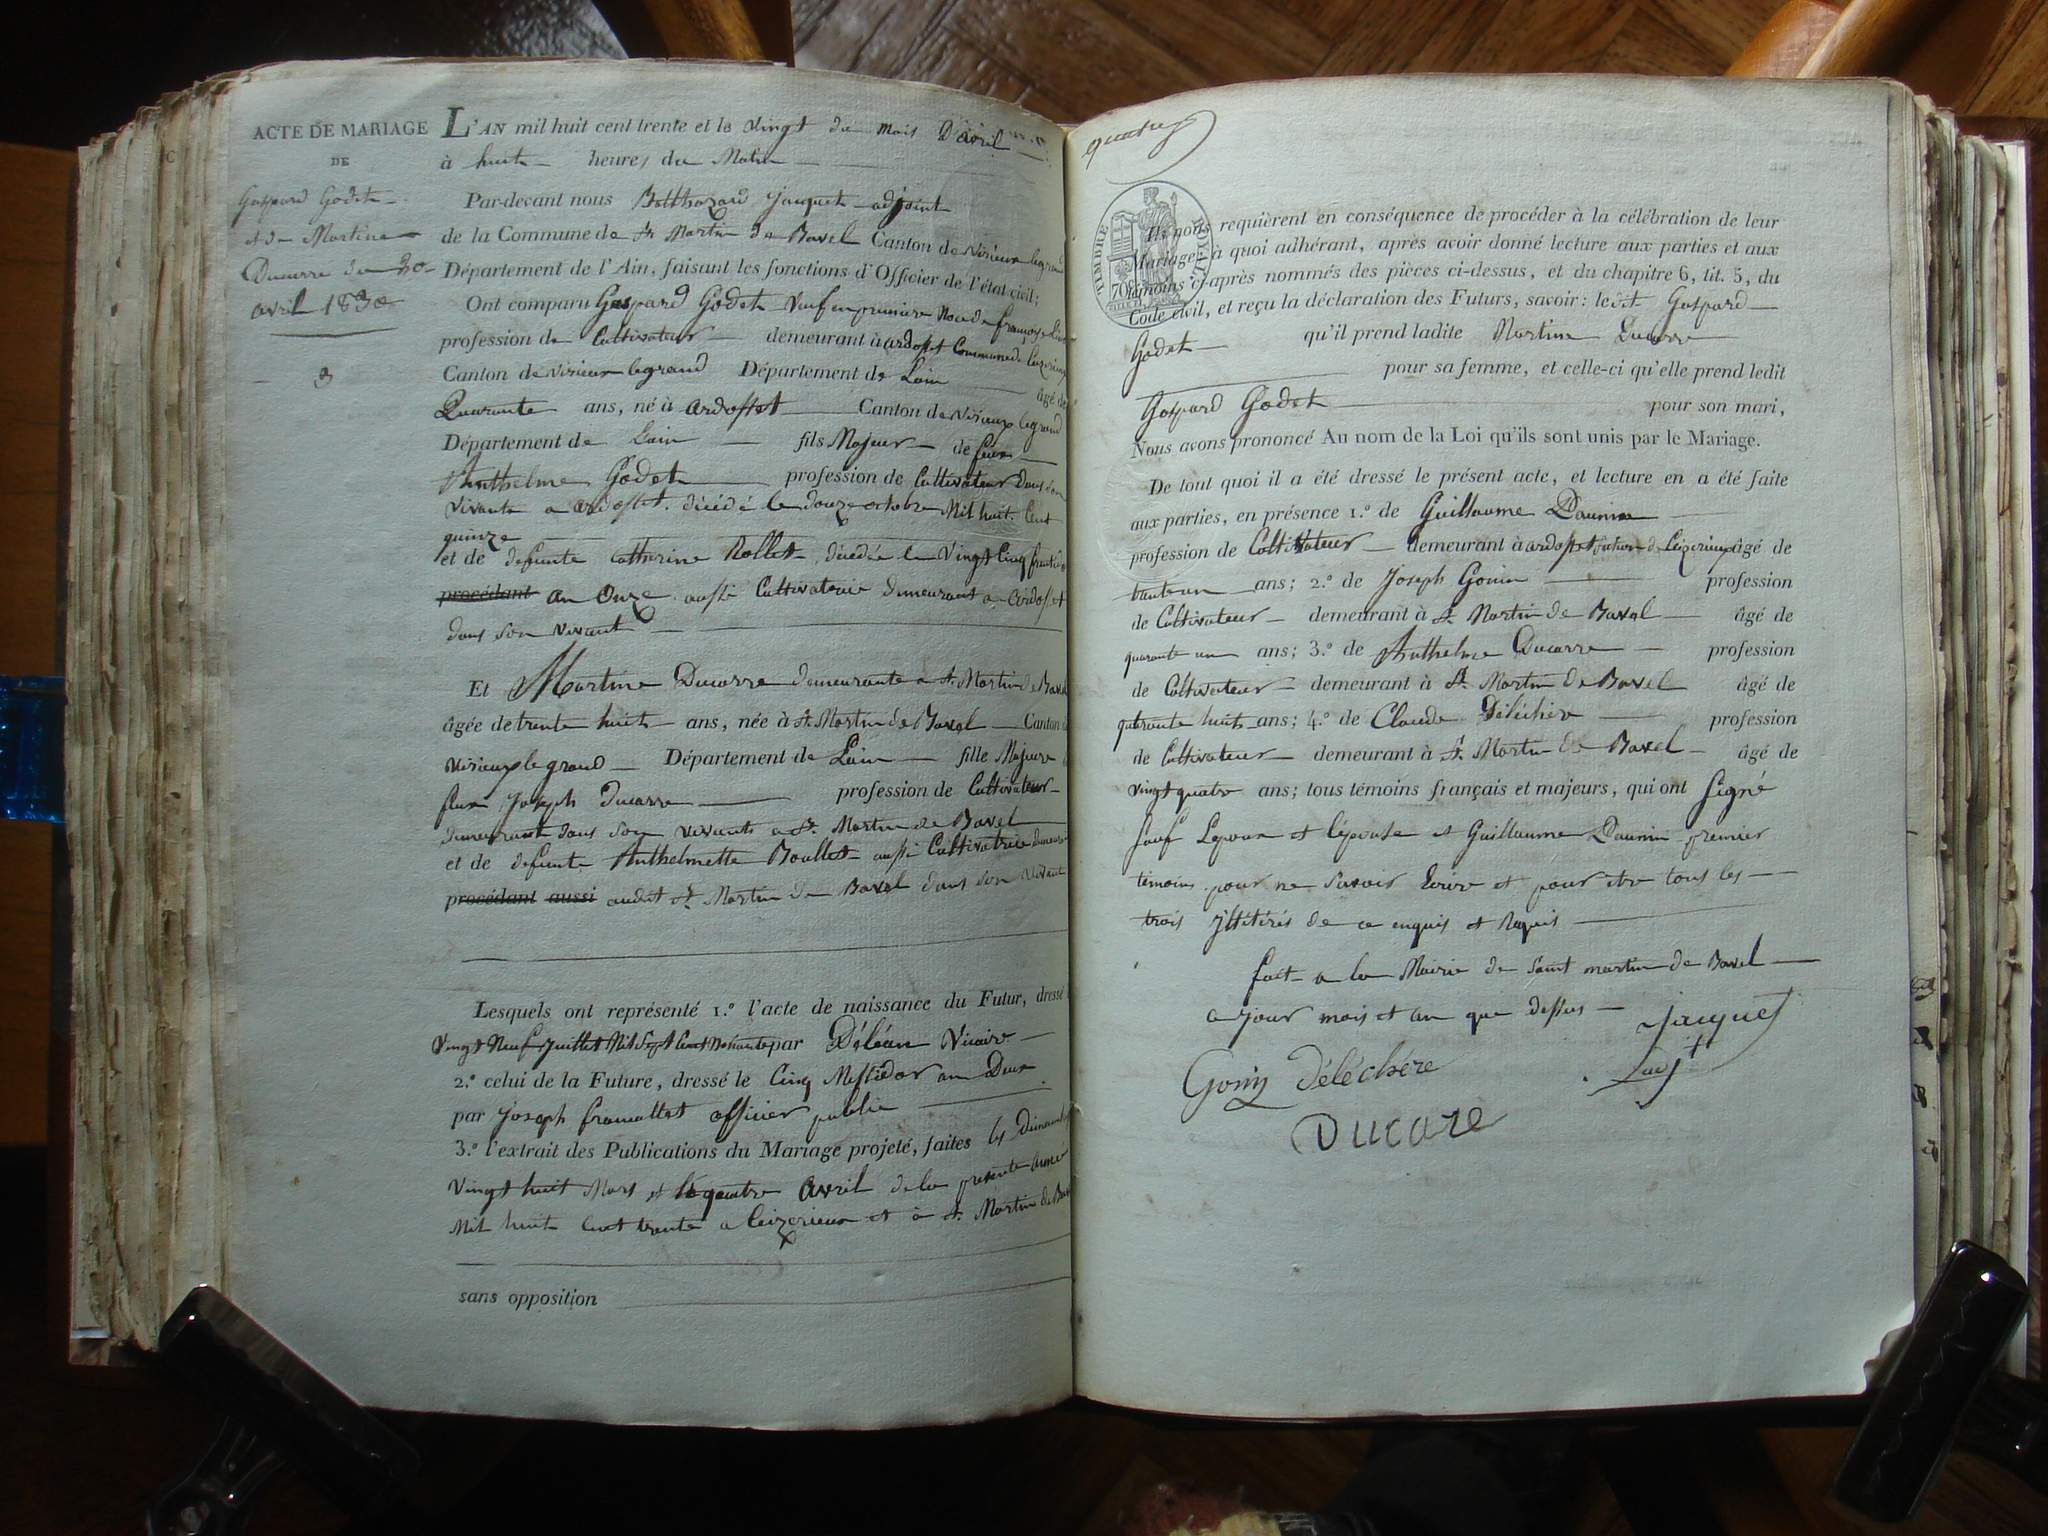 ACTE DE MARIAGE
DE
Gaspard Godet
et de Martine
Ducarre du 20
avril 1830
3
L'AN mil huit cent trente et le vingt du mois D'avril
à huit heures du Matin
Par-devant nous Balthazard Jacquet adjoint
de la Commune de St Martin de Bavel Canton de virieux legrand
Département de l'Ain, faisant les fonctions d'Officier de l'état civil;
Ont comparu Gaspard Godet Veuf en premiere Noce de françoise
profession de Cultivateur demeurant à ardosset Commune de
Canton de virieux legrand Département de Lain âgé de
Quarante ans, né à ardosset Canton de virieux legrand
Département de Lain fils Majeur de feux
Anthelme Godet profession de Cultivateur dans son
vivant a ardosset. décédé le douze octobre Mil huit Cent
quinze
et de defunte Catherine Rollet décédée le Vingt Cinq
procédant an Onze aussi Cultivatrice demeurant a ardosset
dans son vivant
Et Martine Ducarre demeurante a St Martin de Bavel
âgée de trente huit ans, née à St Martin de Bavel Canton
virieux le grand Département de Lain fille Majeure
feux Joseph Ducarre profession de Cultivateur
demeurant dans son vivant a St Martin de Bavel
et de defunte Anthelmette Boullet aussi Cultivatrice
procédant aussi audit St Martin de Bavel dans son vivant
Lesquels ont représenté 1.º l'acte de naissance du Futur, dressé
Vingt Neuf Juillet Mil Sept Cent Nonante par Déléan Vicaire
2.º celui de la Future, dressé le Cinq Messidor an Deux
par Joseph framallet officier public
3.º l'extrait des Publications du Mariage projeté, faites les
Vingt huit Mars et le quatre avril de la presente année
Mil huit Cent trente a Ceizerieux et à St Martin de
sans opposition
TIMBRE
70
Ils nous requièrent en conséquence de procéder à la célébration de leur
Mariage, à quoi adhérant, après avoir donné lecture aux parties et aux
témoins ci-après nommés des pièces ci-dessus, et du chapitre 6, tit. 5, du
Code civil, et reçu la déclaration des Futurs, savoir: ledit Gaspard
Godet qu'il prend ladite Martine Ducarre
pour sa femme, et celle-ci qu'elle prend ledit
Gaspard Godet pour son mari,
Nous avons prononcé Au nom de la Loi qu'ils sont unis par le Mariage.
De tout quoi il a été dressé le présent acte, et lecture en a été faite
aux parties, en présence 1.º de Guillaume Daunin
profession de Cultivateur demeurant à ardosset âgé de
ans; 2.º de Joseph Gonin profession
de Cultivateur demeurant à St Martin de Bavel âgé de
quarante un ans; 3.º de Anthelme Ducarre profession
de Cultivateur demeurant à St Martin de Bavel âgé de
quarante huit ans; 4.º de Claude Délécher profession
de Cultivateur demeurant à St Martin de Bavel âgé de
vingt quatre ans; tous témoins français et majeurs, qui ont Signé
sauf Lepoux et lépouse et Guillaume Daunin premier
témoins pour ne Savoir Ecrire et pour être tous les
trois Illitérés de ce enquis et Requis
fait a la Mairie de Saint martin de Bavel
a jour mois et an que dessus
Jacquet
Gonin Déléchère
adjt
Ducare